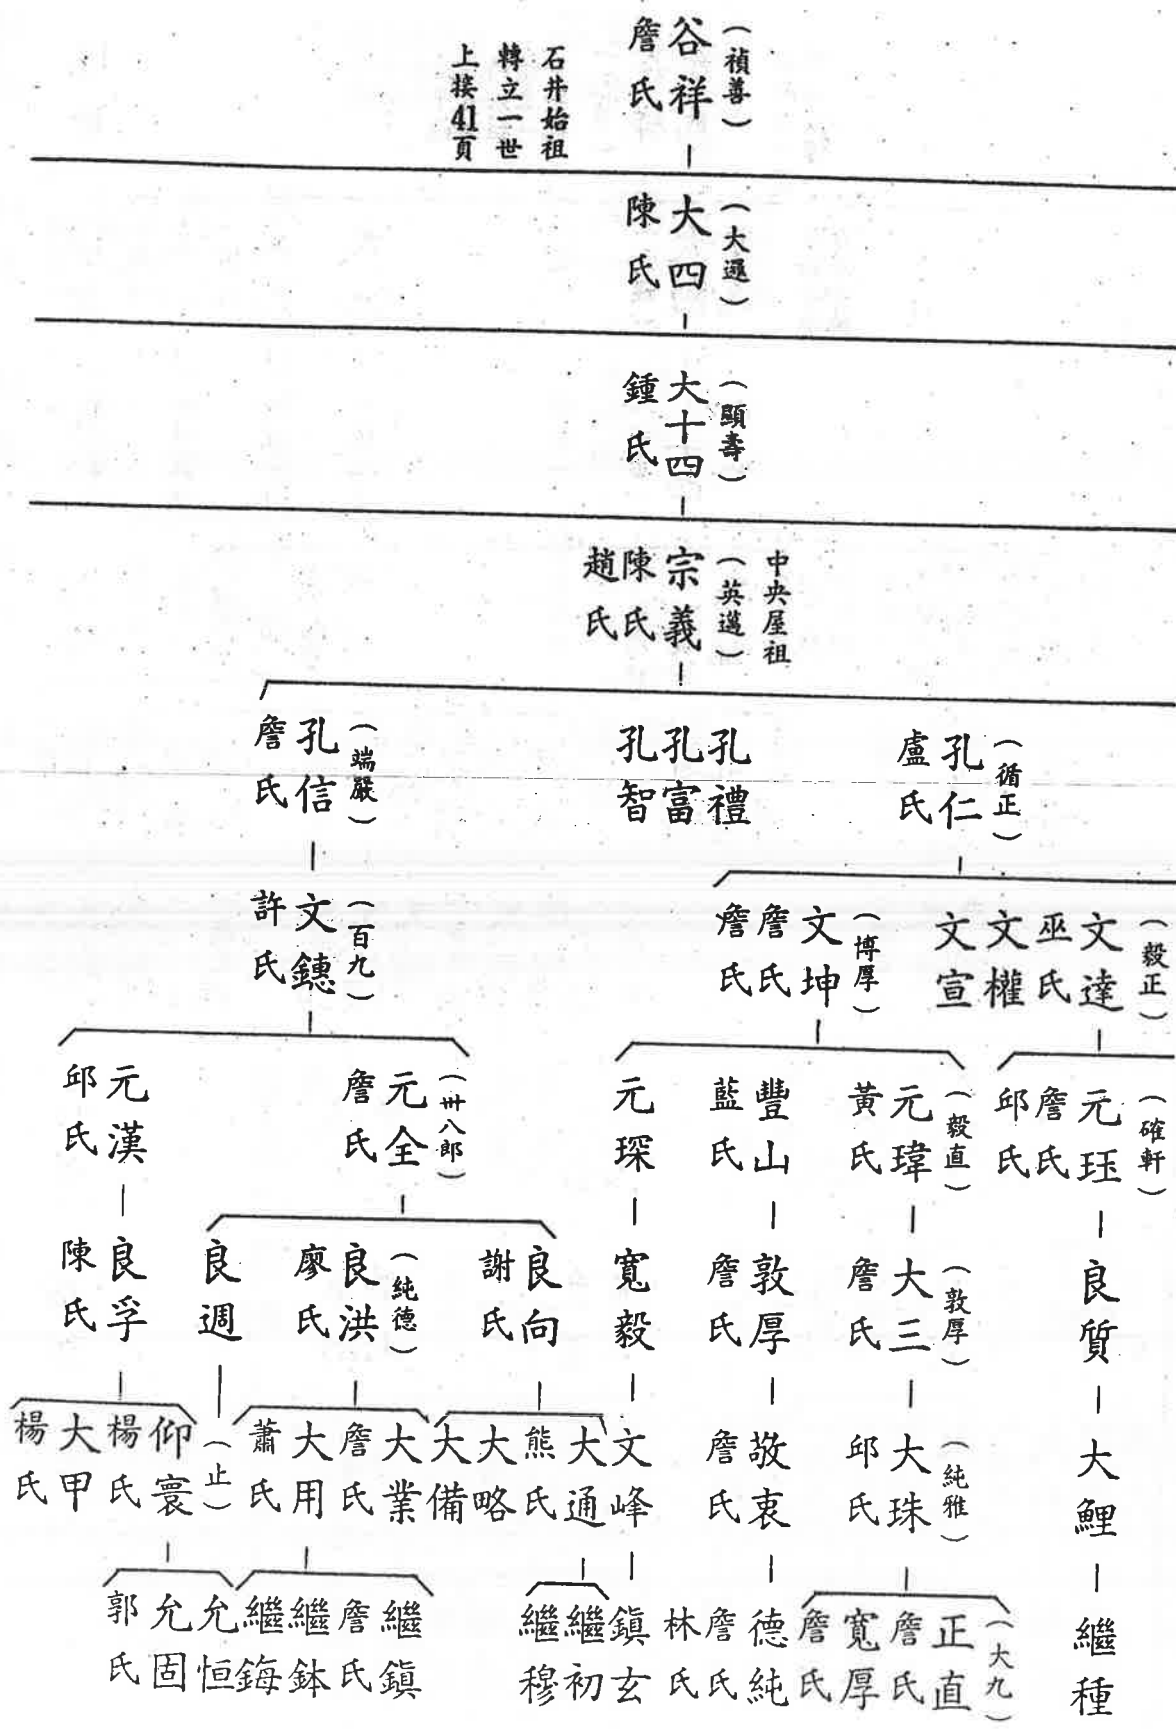 (禎善)
谷祥
詹氏
石井始祖
轉立一世
上接41頁
(大遜)
大四
陳氏
(顯壽)
大十四
鍾氏
中央屋祖
(英邁)
宗義
陳氏
趙氏
(循正)
孔仁
盧氏
孔禮
孔富
孔智
(端嚴)
孔信
詹氏
(毅正)
文達
巫氏
文權
文宣
(博厚)
文坤
詹氏
詹氏
(百九)
文鏸
許氏
(確軒)
元珏
詹氏
邱氏
(毅直)
元瑋
黃氏
豐山
藍氏
元琛
(卅八郎)
元全
詹氏
元漢
邱氏
良質
(敦厚)
大三
詹氏
敦厚
詹氏
寬毅
良向
謝氏
(純德)
良洪
廖氏
良週
良孚
陳氏
大鯉
(純雅)
大珠
邱氏
敬衷
詹氏
文峰
大通
熊氏
大略
大備
大業
詹氏
大用
蕭氏
(止)
仰寰
楊氏
大甲
楊氏
繼種
(大九)
正直
詹氏
寬厚
詹氏
德純
詹氏
林氏
鎮玄
繼初
繼穆
繼鎮
詹氏
繼鉢
繼鋂
允恒
允固
郭氏